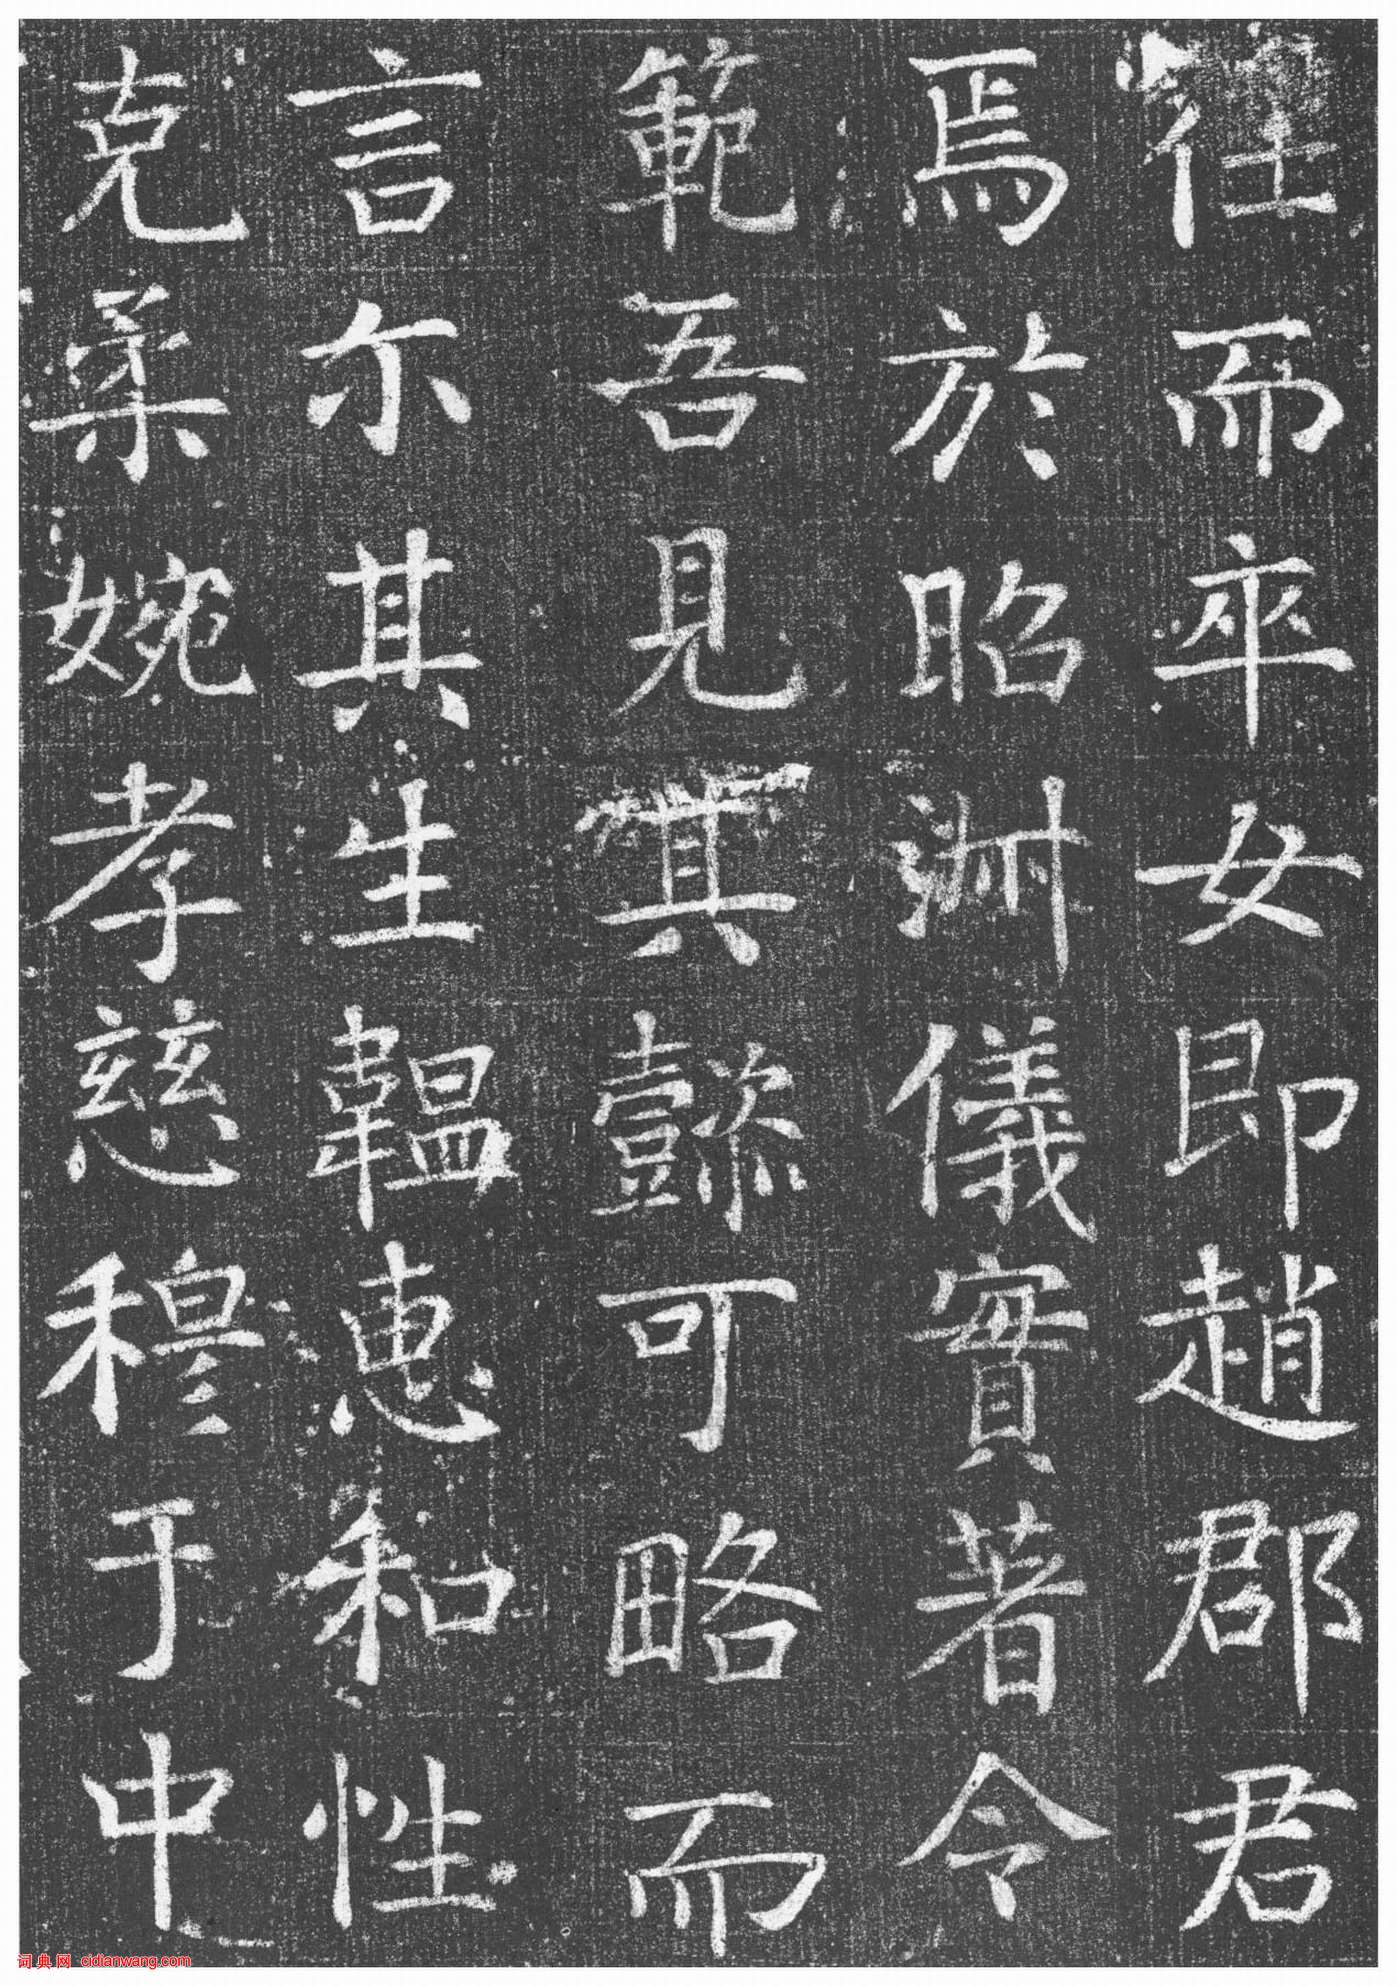 仕而卒女即趙郡君
焉於昭淑儀實著令
範吾見其懿可略而
言尔其生韞惠和性
克柔婉孝慈穆于中
词典网 cidianwang.com